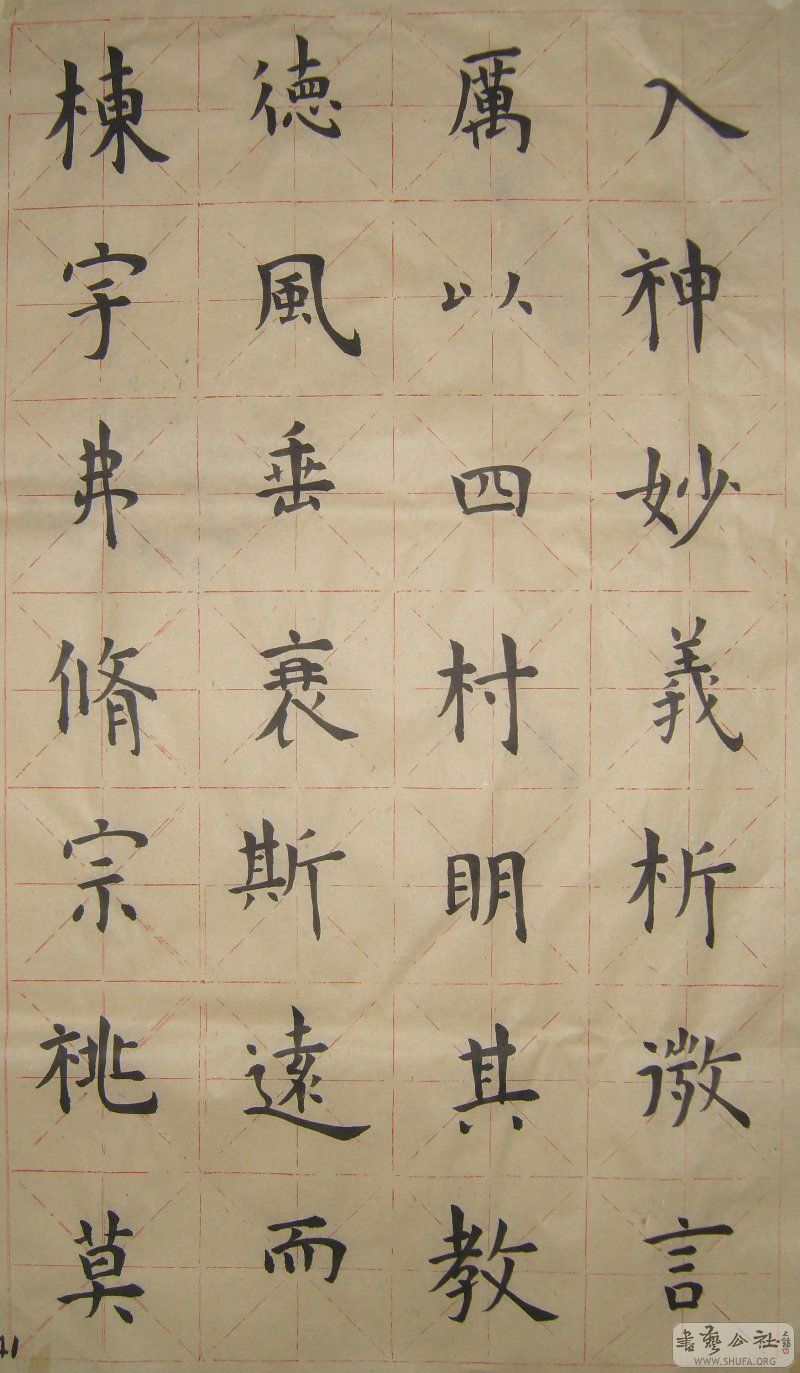 入神妙義析微言
厲以四村眀其教
徳風垂衰斯遠而
棟宇弗脩宗祧莫
書藝公社
WWW.SHUFA.ORG